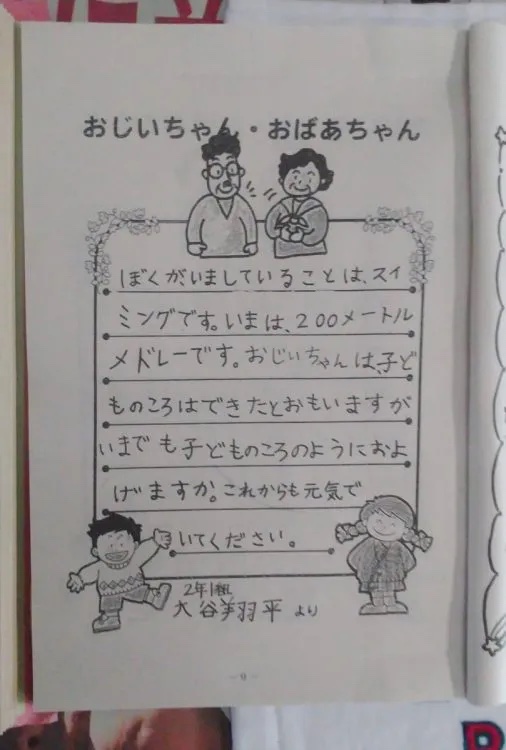 おじいちゃん・おばあちゃん
ぼくがいましていることは、スイ
ミングです。いまは、200メートル
メドレーです。おじいちゃんは、子ど
ものころはできたとおもいますが
いまでも子どものころのようにおよ
げますか。これからも元気で
いてください。
2年1組
大谷翔平 より
— 9 —